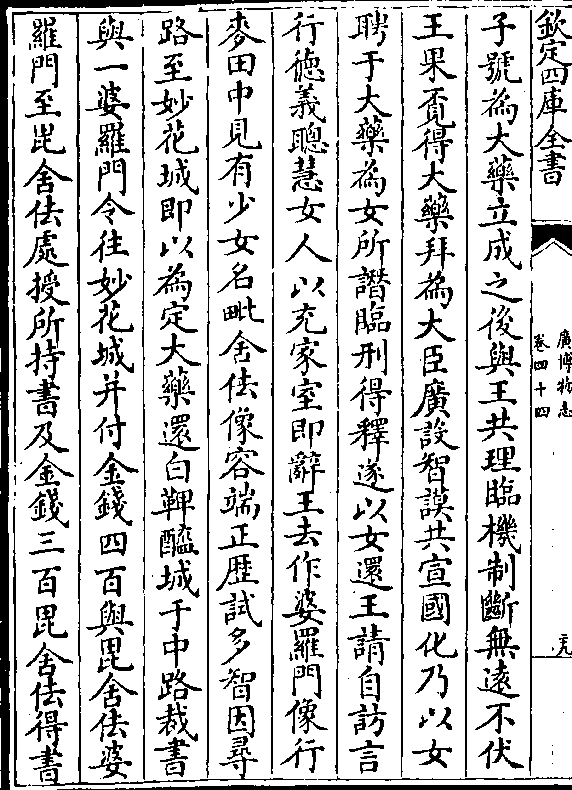 欽定四庫全書
廣博物志
卷四十四
子號為大藥立成之後與王共理臨機制斷無遠不伏
王果覔得大藥拜為大臣廣設智謀共宣國化乃以女
聘于大藥為女所譖臨刑得釋遂以女還王請自訪言
行徳義聰慧女人以充家室即辭王去作婆羅門像行
麥田中見有少女名毗舍佉像容端正歴試多智因尋
路至妙花城即以為定大藥還白鞞醯城于中路裁書
與一婆羅門令往妙花城并付金錢四百與毘舍佉婆
羅門至毘舍佉處授所持書及金錢三百毘舍佉得書